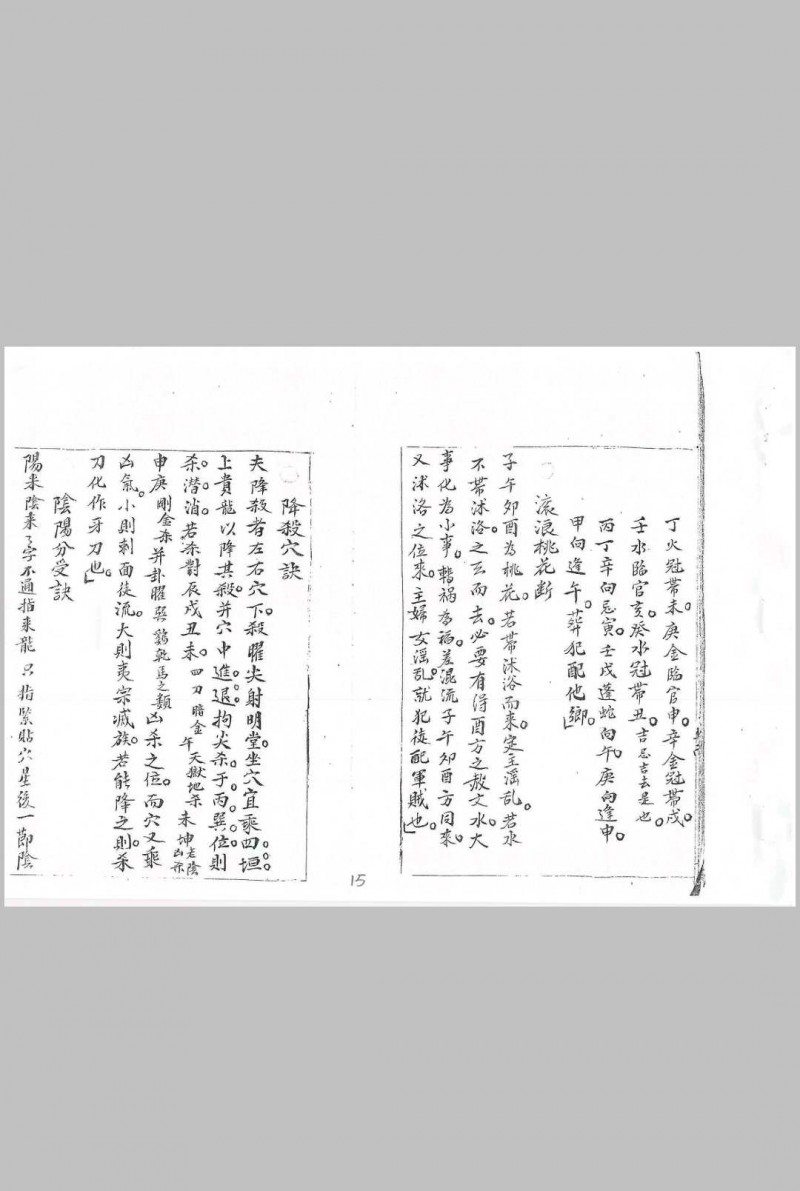 丁火冠帶未。庚金臨官申。辛金冠帶戌。
壬水臨官亥。癸水冠帶丑。吉忌吉去是也。
丙丁辛向忌寅。壬戌蓬蛇向午。庚向逢申。
甲向逢午。葬犯配他鄉。」
滾浪桃花斷
子午卯酉為桃花。若帶沭浴而來。定主滛乱。若水
不帶沭洛。之玄而去。必要有得酉方之赦文水。大
事化為小事。轉祸為福。差混流子午卯酉方同來。
又沭洛之位來。主婦女滛乱。就犯徒配軍賊也。」
15
降殺穴訣
夫降殺者左右穴下。殺曜尖射明堂。坐穴宜乘四垣。
上貴龍以降其殺。并穴中進退拘尖。杀于丙巽位。則
杀潜消。若杀對辰戌丑未。四刀暗金午天獄地杀未坤老陰凶杀
申庚剛金杀并卦曜巽鷄乾馬之類凶杀之位。而穴又乘
凶氣。小則刺面徒流。大則夷宗滅族。若能降之。則杀
刀化作牙刀也。」
陰陽分受訣
陽来陰来了字不通指来龍只指緊貼穴星後一節陰